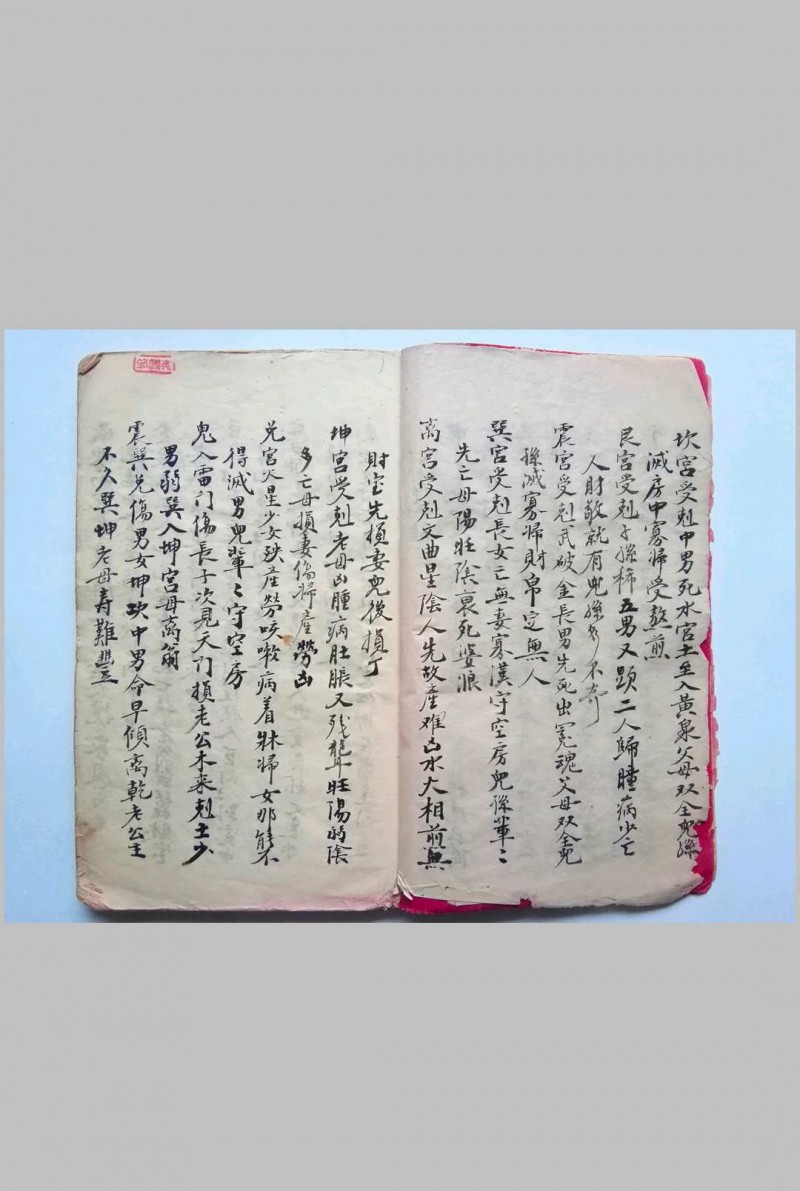 坎宮受剋中男死水宮土至入黃泉父母双全兒孫
滅房中寡婦受熬煎
艮宮受剋子孫稀五男又顕二人歸瞳病少亡
人財敗就有兒孫多不奇
震宮受剋武破金長男先死出冤魂父母双全兒
孫滅寡婦財帛定無人
巽宮受剋長女亡無妻寡漢守空房兒孫輩〻
先亡母陽旺陰衰死婆浪
离宮受剋文曲星陰人先故產难凶水火相煎無
財宝先損妻兒後損丁
坤宮受剋老母凶腫病肚脹又残聾旺陽弱陰
多亡母損妻傷婦產勞凶
兑宮火星少女殃產勞咳嗽病着牀婦女那能不
得滅男兒輩〻守空房
鬼入雷门傷長子次見天门損老公木来剋土少
男弱巽入坤宮母离翁
震巽兑傷男女坤坎中男命早傾离乾老公主
不久巽坤老母寿難豐